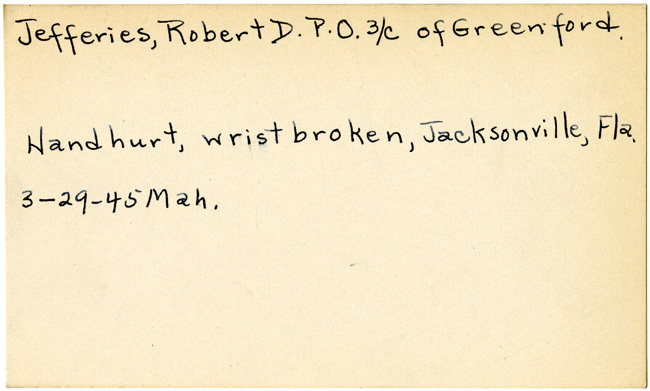 Jefferies, Robert D. P.O. 3/c of Greenford.
Hand hurt, wrist broken, Jacksonville, Fla.
3-29-45 Mah.